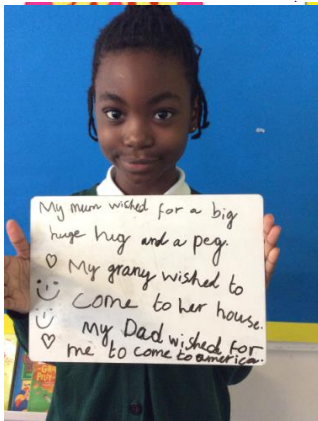 My mum wished for a big
huge hug and a peg.
♡ My grany wished to
come to her house.
My Dad wished for
♡ me to come to america.